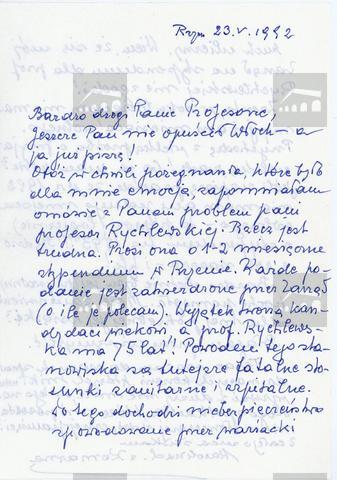 Rzym 23.V.1992
Bardzo drogi Panie Profesorze,
Jeszcze Pan nie opuścił Włoch – a
ja już piszę!
Otóż w chwili pożegnania, które było
dla mnie emocją, zapomniałam
omówić z Panem problem pani
profesor Rychlewskiej. Rzecz jest
trudna. Prosi ona o 1-2 miesięczne
stypendium w Rzymie. Każde po-
danie jest zatwierdzone przez Zarząd
(o ile je polecam). Wyjątek tworzą kan-
dydaci wiekowi a prof. Rychlews-
ka ma 75 lat! Powodem tego sta-
nowiska są tutejsze fatalne sto-
sunki sanitarne i szpitalne.
Do tego dochodzi niebezpieczeństwo
spowodowane przez wariacki